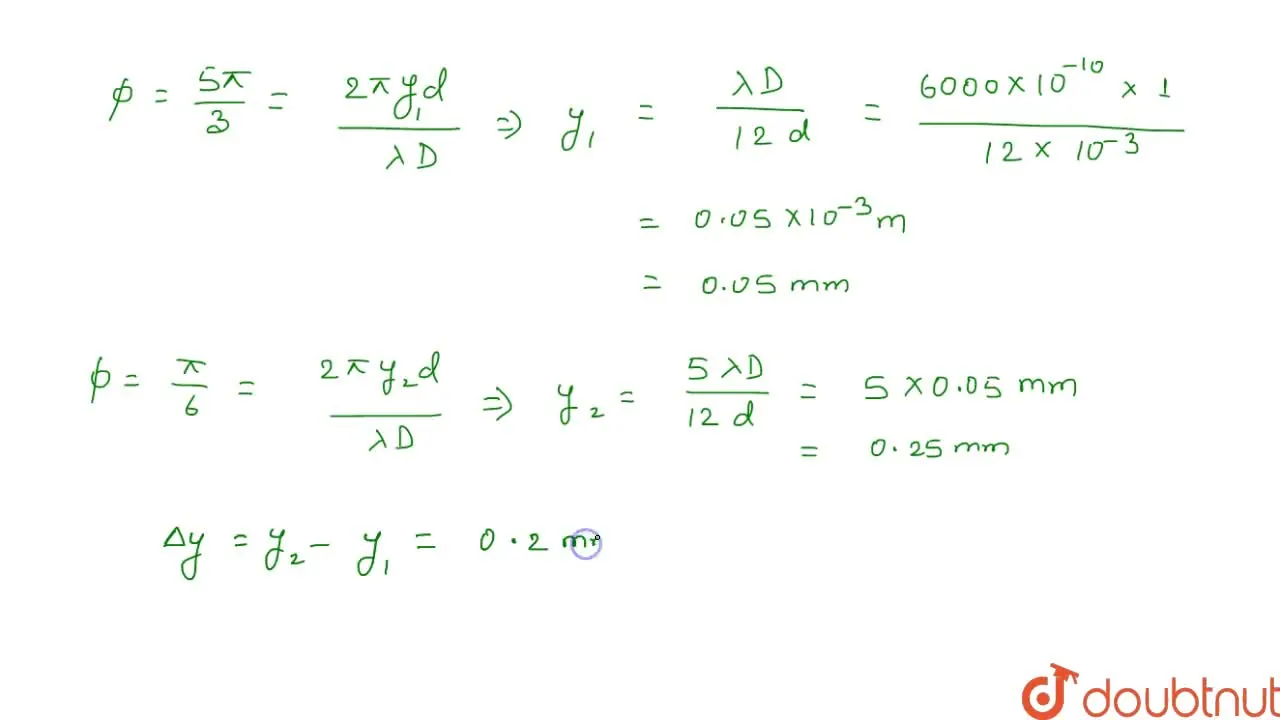 φ = 5π/3 = 2πy₁d/λD ⇒ y₁ = λD/12d = 6000×10⁻¹⁰ × 1/12× 10⁻³
= 0.05 ×10⁻³ m
= 0.05 mm
φ = π/6 = 2πy₂d/λD ⇒ y₂ = 5λD/12d = 5 × 0.05 mm
= 0.25 mm
Δy = y₂ - y₁ = 0.2
doubtnut